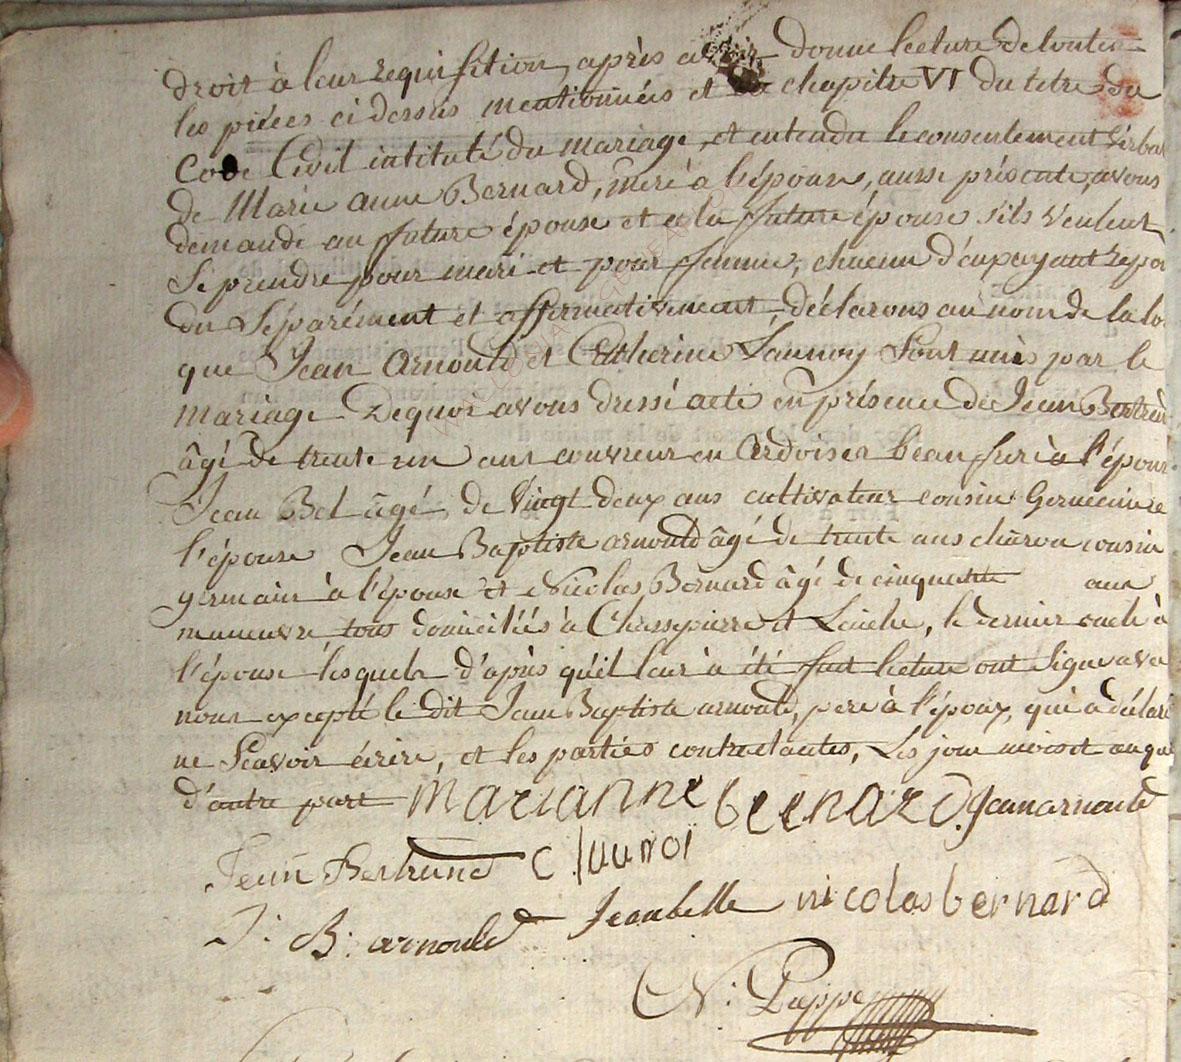 droit à leur requisition, après avoir donné lecture de toutes
les pièces ci dessus mentionnées et du chapitre VI du titre du
Code Civil intitulé du mariage, et entendu le consentement verbal
de Marie anne Bernard, mere à l'épouse, aussi présente, avons
demandé au future épouse et à la future épouse s'ils veulent
Se prendre pour mari et pour femme, chacun d'eux ayant repon
du Séparément et affirmativement, déclarons au nom de la loi
que Jean Arnould et Catherine Launoy Sont unis par le
mariage. De quoi avons dressé acte en présence de Jean Bertrand
âgé de trente un ans couvreur en Ardoises beau frere à l'époux
Jean Bel âgé de Vingt deux ans cultivateur cousin Germain à
l'épouse Jean Baptiste arnould âgé de trente ans charon cousin
germain à l'épouse et Nicolas Bernard âgé de cinquante ans
maneuvre tous domiciliés à Chassepierre et Laiche, le dernier oncle à
l'épouse lesquels d'après qu'il leur à été fait lecture ont Signé avec
nous excepté le dit Jean Baptiste arnould, pere à l'époux, qui à déclaré
ne Scavoir écrire, et les parties contractantes, Les jour mois et an que
d'autre part Marianne bernard. Jean arnould
Jean Bertrand C launoi
J: B: arnould Jean belle nicolas bernard
N: Pieppe